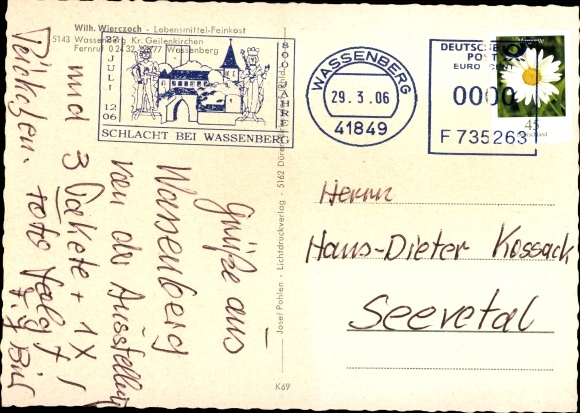 Wilh. Wierczoch - Lebensmittel-Feinkost
5143 Wassenberg Kr. Geilenkirchen
Fernruf 02432 Wassenberg
27. JULI 1206
800 JAHRE
SCHLACHT BEI WASSENBERG
WASSENBERG
29.3.06
41849
DEUTSCHE
PO
EURO CENT
0000
F 735263
45
Grüße aus
Wassenberg
von der Ausstellung
und 3 Pakete + 1 X
rote
Herrn
Hans-Dieter Kossack
Seevetal
Josef Pohlen - Lichtdruckverlag - 5162
K69